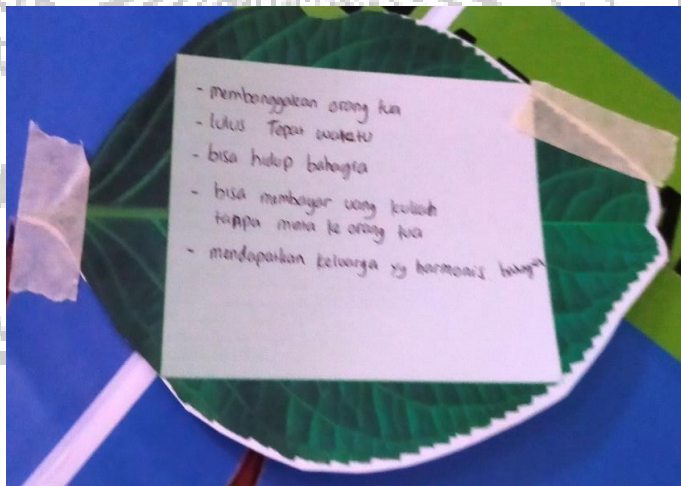 - membanggakan orang tua
- lulus Tepat waktu
- bisa hidup bahagia
- bisa membayar uang kuliah
tanpa minta ke orang tua
- mendapatkan keluarga yg harmonis bahagia